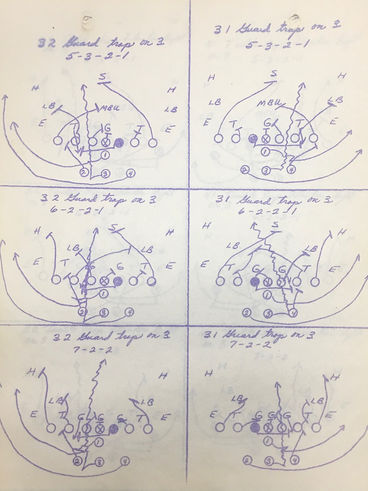 32 Guard trap on 3
5-3-2-1
S
H
H
LB
MBU
LB
E
T
G
T
E
1
2
3
4
31 Guard trap on 3
5-3-2-1
S
H
H
LB
MBU
LB
E
T
G
T
E
1
2
3
4
32 Guard trap on 3
6-2-2-1
H
S
H
LB
LB
E
T
G
G
T
E
1
2
3
4
31 Guard trap on 3
6-2-2-1
H
S
H
LB
LB
E
T
G
G
T
E
1
2
3
4
32 Guard trap on 3
7-2-2
H
H
LB
LB
E
T
G
G
G
T
E
1
2
3
4
31 Guard trap on 3
7-2-2
H
H
LB
LB
E
T
G
G
G
T
E
1
2
3
4